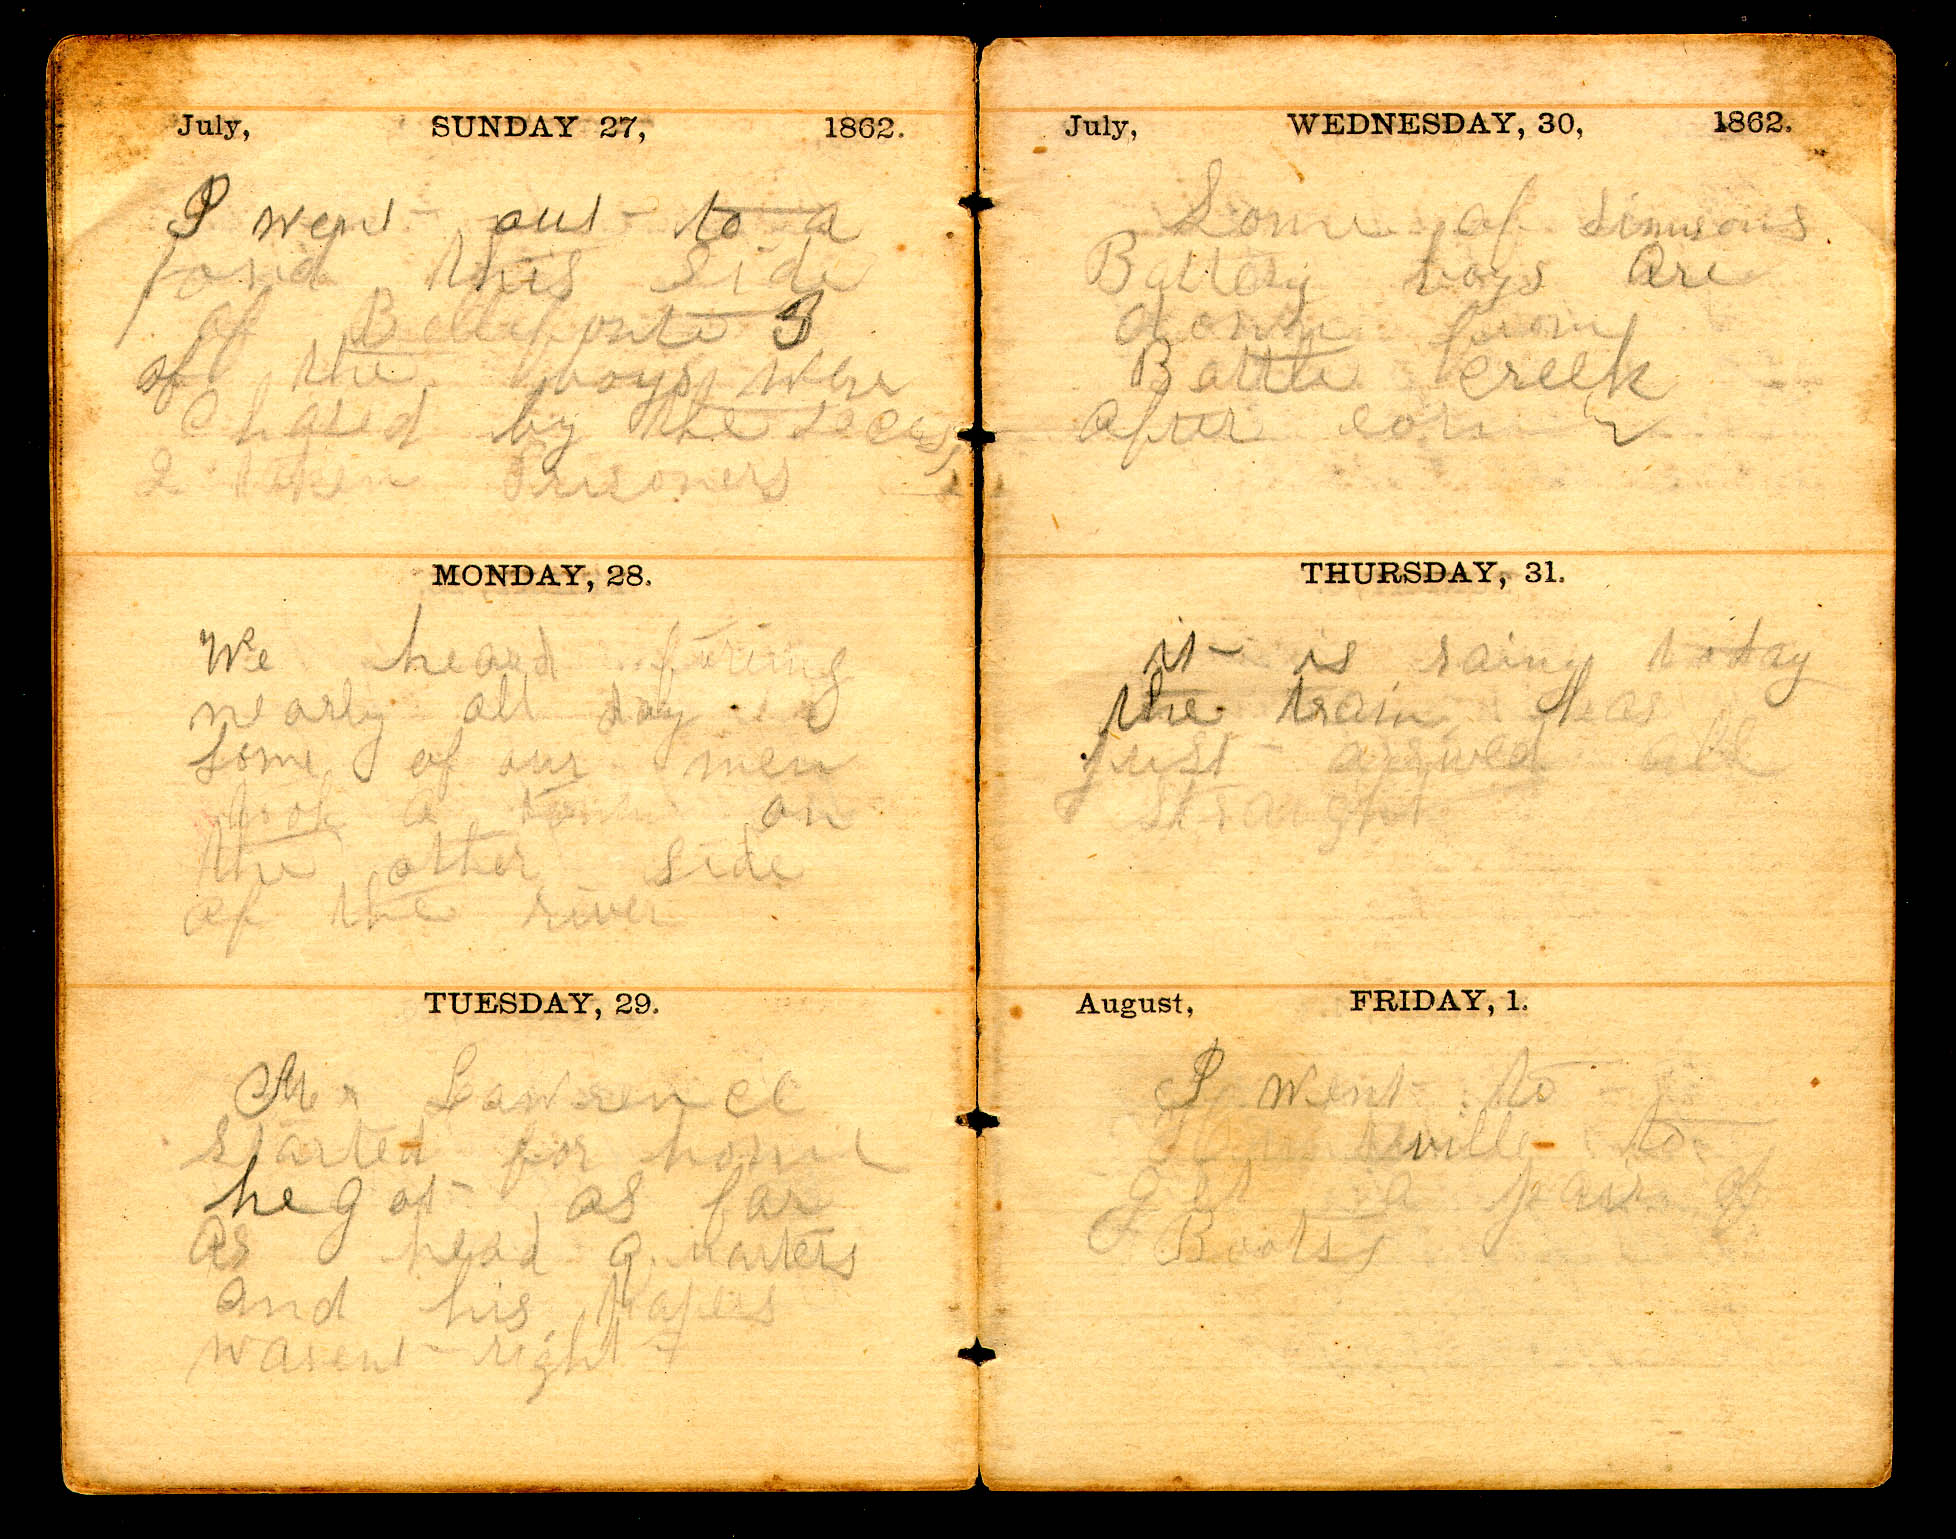 July, SUNDAY 27, 1862.
I went out to a
ford this side
of Bellefonte 3
of the boys were
chased by the seces,
2 taken Prisoners
MONDAY, 28.
We heard firing
nearly all day
Some of our men
took a town on
the other side
of the river
TUESDAY, 29.
Mr Lawrence
started for home
he got as far
as head quarters
and his papers
wasent right
July, WEDNESDAY, 30, 1862.
Some of Simsons
Battery boys are
down from
Battle creek
after corn
THURSDAY, 31.
it is rainy today
the train has
just arived all
straight
August, FRIDAY, 1.
I went to
Huntsville to
get a pair of
Boots